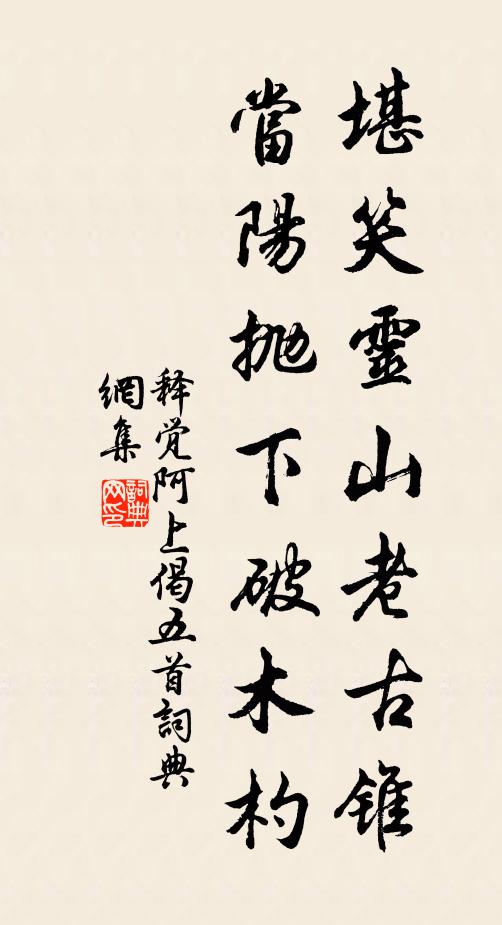 堪笑靈山老古錐
當陽拋下破木杓
释觉阿上偈五首詞典
網集
詞典网印